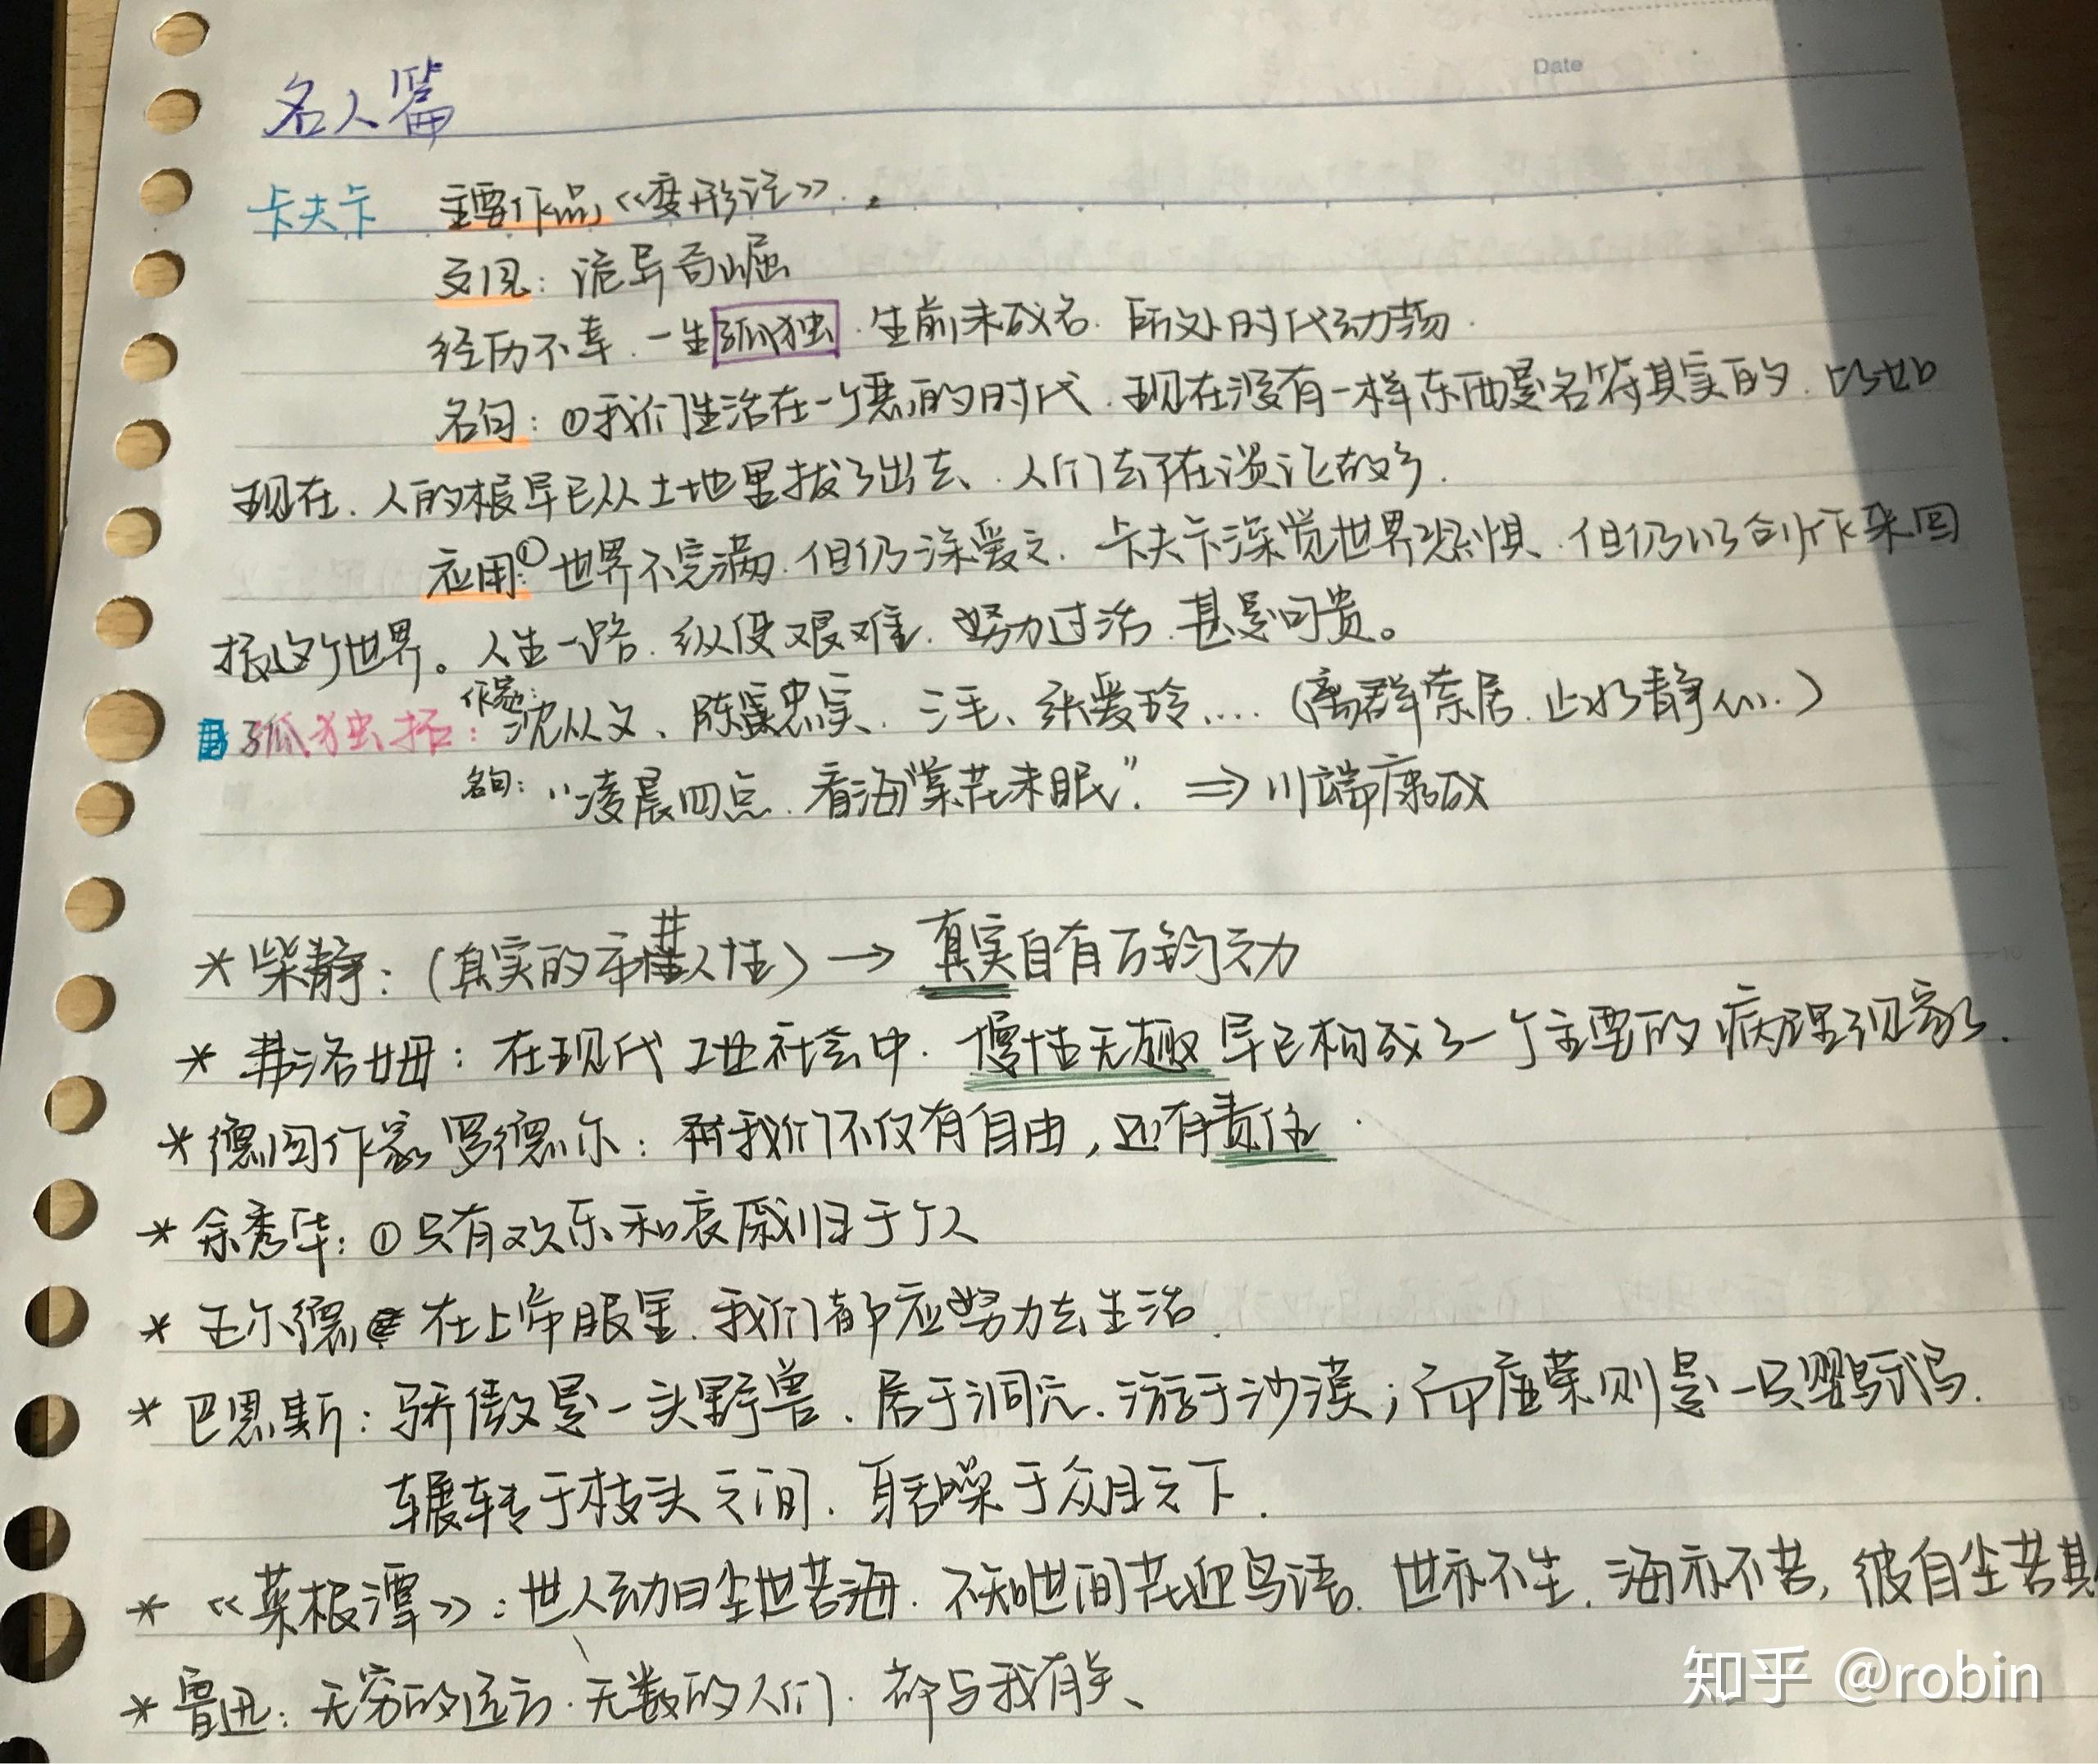 Date
名人篇
卡夫卡 主要作品《变形记》.
文风：诡异奇崛
经历不幸.一生孤独.生前未成名.所处时代动荡.
名句：①我们生活在一个恶的时代.现在没有一样东西是名符其实的.比如
现在.人的根早已从土地里拔了出去、.人们去不在谈论故乡.
应用：①世界不完满.但仍深爱之.卡夫卡深觉世界恐惧.但仍以创作来回
报这个世界。人生一路.纵使艰难.努力过活.甚是可贵。
孤独拓：作家：沈从文、陈忠实、三毛、张爱玲....（离群索居.止水静心..）
名句："凌晨四点.看海棠花未眠".⇒川端康成
*柴静：（真实的人性）→真实自有万钧之力
*弗洛姆：在现代工业社会中.慢性无趣早已构成了一个主要的病理现象.
*德国作家罗德尔：我们不仅有自由，还有责任.
*余秀华：①只有欢乐和哀戚归于个人
*王尔德 在上帝眼里.我们都应努力去生活.
*巴恩斯：骄傲是一头野兽.居于洞穴.游于沙漠；而虚荣则是一只鹦鹉.
辗转于枝头之间.聒噪于众目之下.
*《菜根潭》：世人动曰尘世苦海.不知世间花迎鸟语.世亦不尘.海亦不苦，彼自尘苦其
*鲁迅：无穷的远方.无数的人们.都与我有关、
知乎 @robin